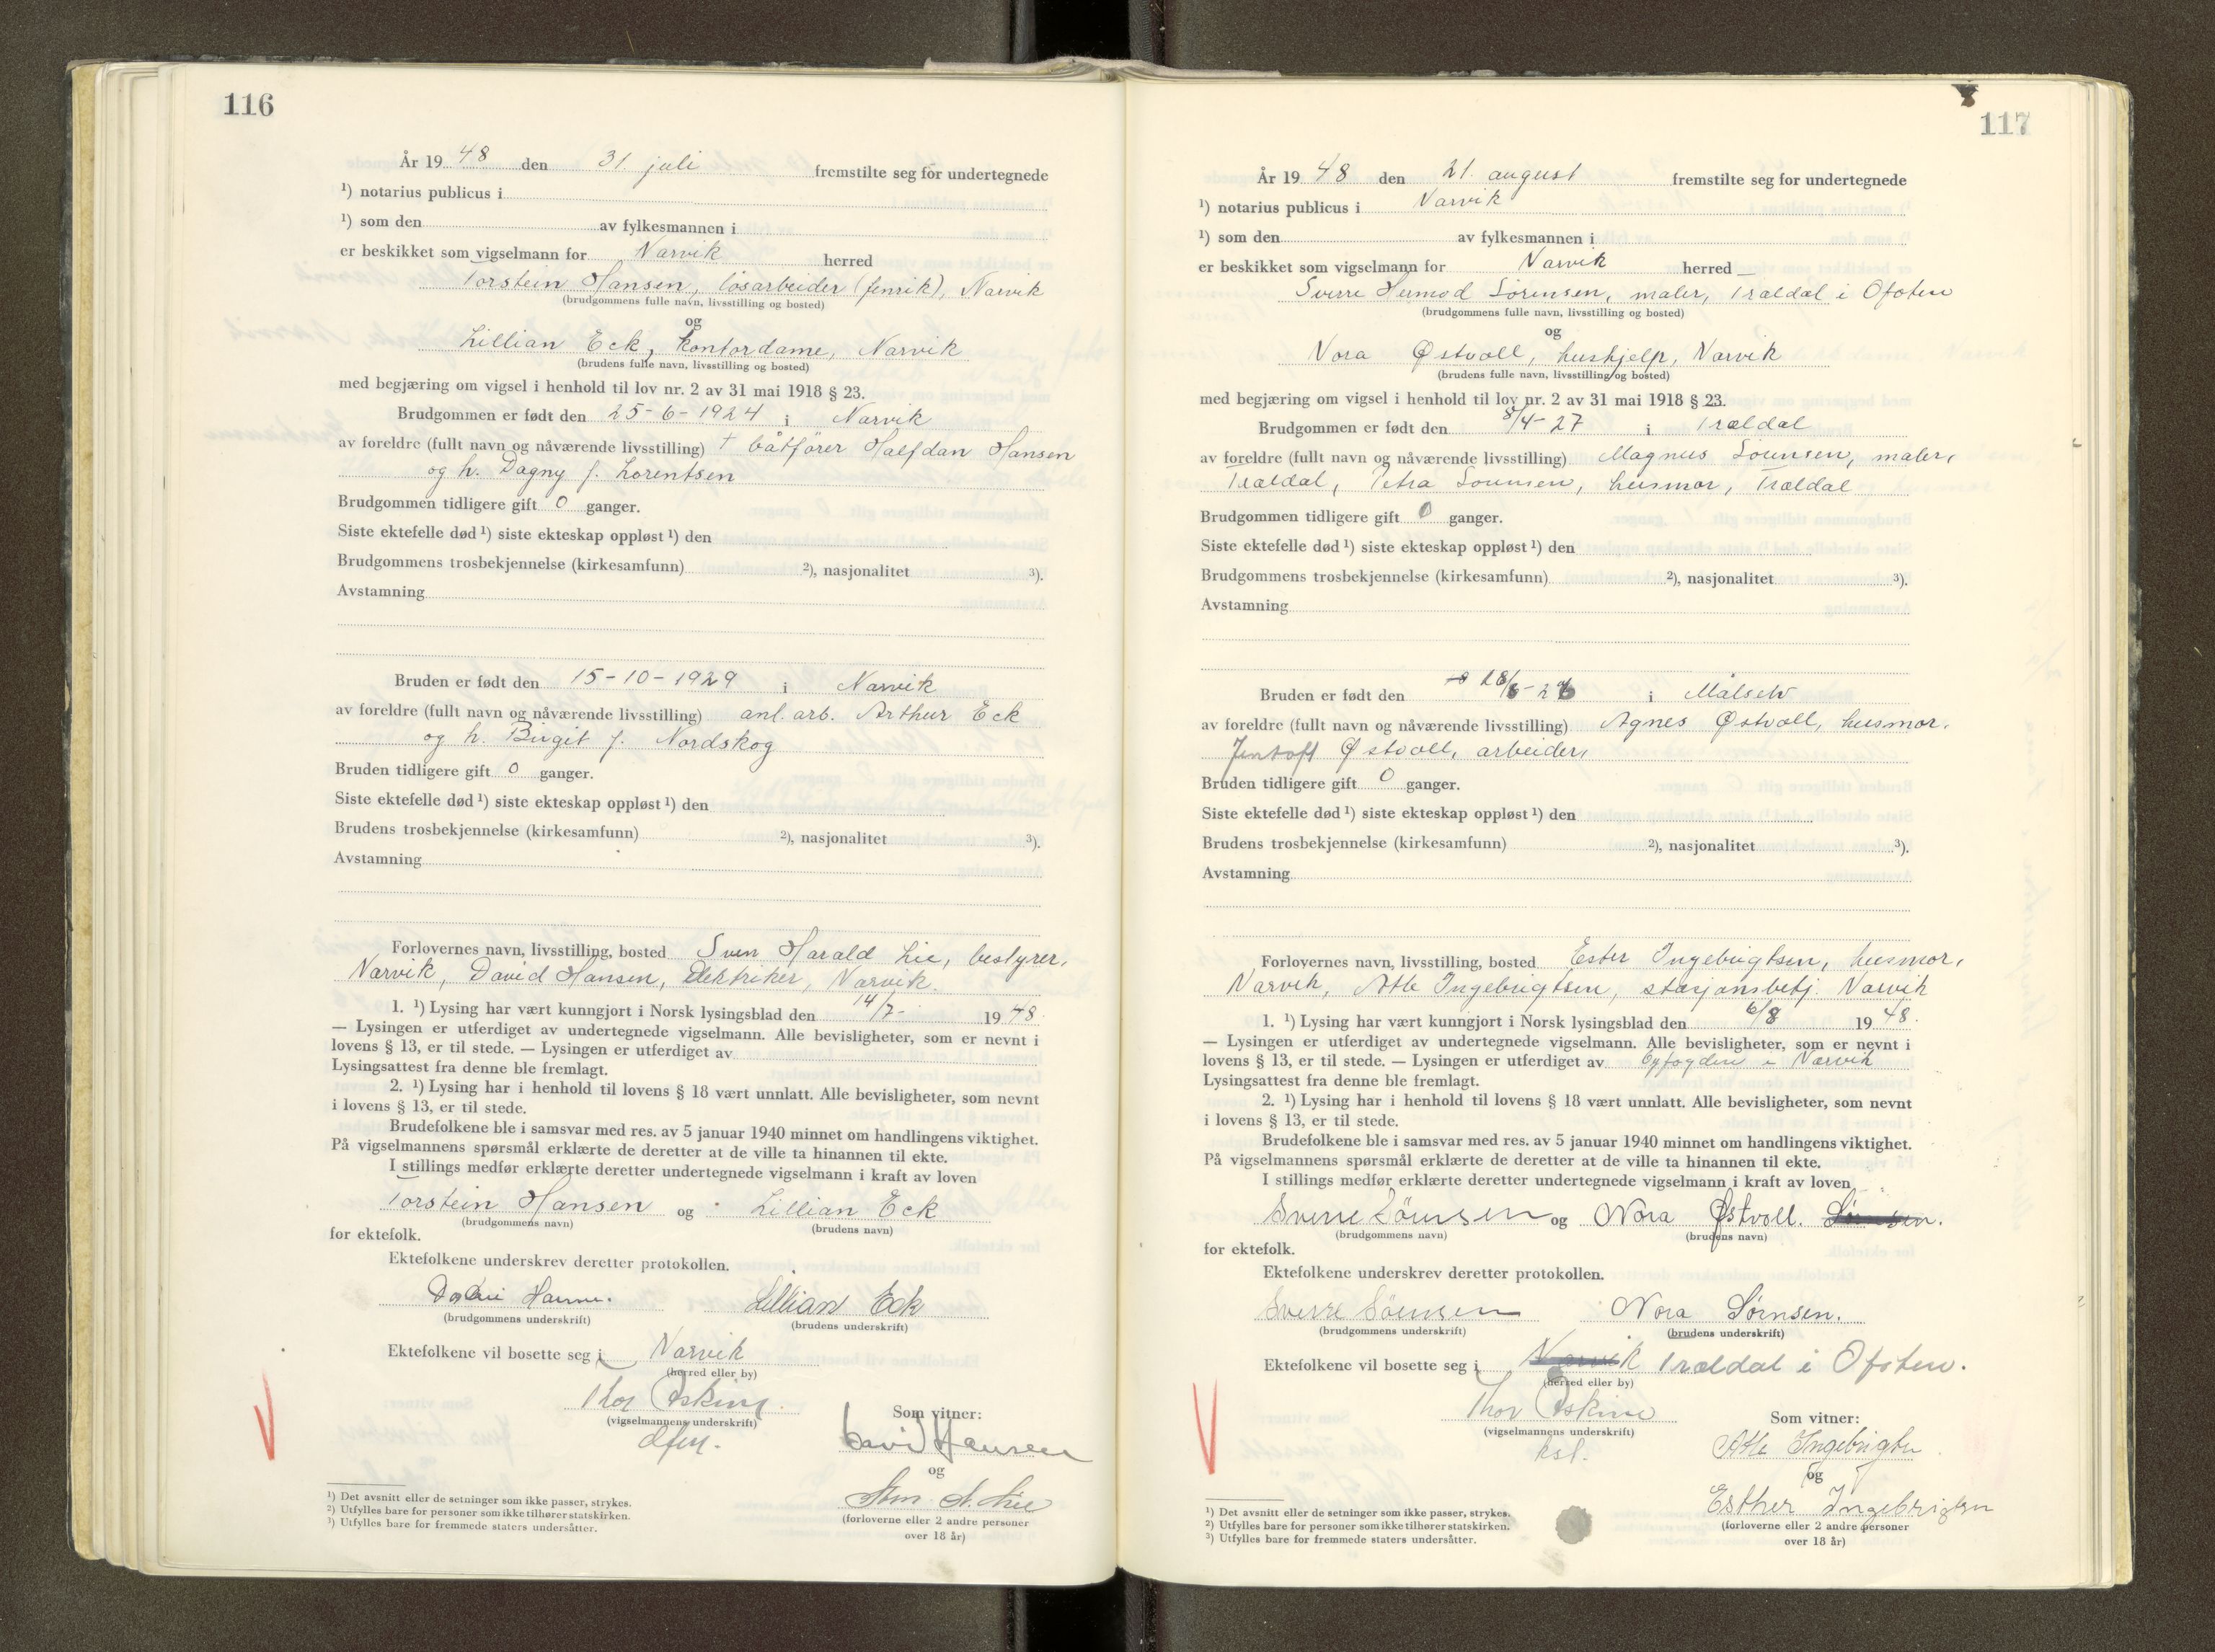 116
År 19 48 den 31. juli fremstilte seg for undertegnede
¹) notarius publicus i
¹) som den av fylkesmannen i
er beskikket som vigselmann for Narvik herred
Torstein Hansen, løsarbeider (fenrik), Narvik
(brudgommens fulle navn, livsstilling og bosted)
og
Lillian Eck, kontordame, Narvik
(brudens fulle navn, livsstilling og bosted)
med begjæring om vigsel i henhold til lov nr. 2 av 31 mai 1918 § 23.
Brudgommen er født den 25-6-1924 i Narvik
av foreldre (fullt navn og nåværende livsstilling) † båtfører Halfdan Hansen
og h. Dagny f. Lorentsen
Brudgommen tidligere gift 0 ganger.
Siste ektefelle død ¹) siste ekteskap oppløst ¹) den
Brudgommens trosbekjennelse (kirkesamfunn) ²), nasjonalitet ³).
Avstamning
Bruden er født den 15-10-1929 i Narvik
av foreldre (fullt navn og nåværende livsstilling) anl. arb. Arthur Eck
og h. Birgit f. Nordskog
Bruden tidligere gift 0 ganger.
Siste ektefelle død ¹) siste ekteskap oppløst ¹) den
Brudens trosbekjennelse (kirkesamfunn) ²), nasjonalitet ³).
Avstamning
Forlovernes navn, livsstilling, bosted Sven Harald Lie, bestyrer,
Narvik, David Hansen, elektriker, Narvik.
1. ¹) Lysing har vært kunngjort i Norsk lysingsblad den 14/7- 19 48.
— Lysingen er utferdiget av undertegnede vigselmann. Alle bevisligheter, som er nevnt i
lovens § 13, er til stede. — Lysingen er utferdiget av
Lysingsattest fra denne ble fremlagt.
2. ¹) Lysing har i henhold til lovens § 18 vært unnlatt. Alle bevisligheter, som nevnt
i lovens § 13, er til stede.
Brudefolkene ble i samsvar med res. av 5 januar 1940 minnet om handlingens viktighet.
På vigselmannens spørsmål erklærte de deretter at de ville ta hinannen til ekte.
I stillings medfør erklærte deretter undertegnede vigselmann i kraft av loven
Torstein Hansen og Lillian Eck
(brudgommens navn) (brudens navn)
for ektefolk.
Ektefolkene underskrev deretter protokollen.
Lillian Eck
(brudgommens underskrift) (brudens underskrift)
Ektefolkene vil bosette seg i Narvik
(herred eller by)
Thor
(vigselmannens underskrift)
Som vitner:
David Hansen
og
(forloverne eller 2 andre personer
over 18 år)
¹) Det avsnitt eller de setninger som ikke passer, strykes.
²) Utfylles bare for personer som ikke tilhører statskirken.
³) Utfylles bare for fremmede staters undersåtter.
117
År 19 48 den 21. august fremstilte seg for undertegnede
¹) notarius publicus i Narvik
¹) som den av fylkesmannen i
er beskikket som vigselmann for Narvik herred
Sverre Hermod Sørensen, maler, Trældal i Ofoten
(brudgommens fulle navn, livsstilling og bosted)
og
Nora Østvoll, hushjelp, Narvik
(brudens fulle navn, livsstilling og bosted)
med begjæring om vigsel i henhold til lov nr. 2 av 31 mai 1918 § 23.
Brudgommen er født den 8/4-27 i Trældal
av foreldre (fullt navn og nåværende livsstilling) Magnus Sørensen, maler,
Trældal, Petra Sørensen, husmor, Trældal
Brudgommen tidligere gift 0 ganger.
Siste ektefelle død ¹) siste ekteskap oppløst ¹) den
Brudgommens trosbekjennelse (kirkesamfunn) ²), nasjonalitet ³).
Avstamning
Bruden er født den i Målselv
av foreldre (fullt navn og nåværende livsstilling) Agnes Østvoll, husmor.
Jentoft Østvoll, arbeider,
Bruden tidligere gift 0 ganger.
Siste ektefelle død ¹) siste ekteskap oppløst ¹) den
Brudens trosbekjennelse (kirkesamfunn) ²), nasjonalitet ³).
Avstamning
Forlovernes navn, livsstilling, bosted Ester Ingebrigtsen, husmor,
Narvik, Atle Ingebrigtsen, stasjonsbetj. Narvik
1. ¹) Lysing har vært kunngjort i Norsk lysingsblad den 6/8 19 48.
— Lysingen er utferdiget av undertegnede vigselmann. Alle bevisligheter, som er nevnt i
lovens § 13, er til stede. — Lysingen er utferdiget av byfogden i Narvik
Lysingsattest fra denne ble fremlagt.
2. ¹) Lysing har i henhold til lovens § 18 vært unnlatt. Alle bevisligheter, som nevnt
i lovens § 13, er til stede.
Brudefolkene ble i samsvar med res. av 5 januar 1940 minnet om handlingens viktighet.
På vigselmannens spørsmål erklærte de deretter at de ville ta hinannen til ekte.
I stillings medfør erklærte deretter undertegnede vigselmann i kraft av loven
Sverre Sörensen og Nora Østvoll.
(brudgommens navn) (brudens navn)
for ektefolk.
Ektefolkene underskrev deretter protokollen.
Sverre Sörensen Nora Sørnsen.
(brudgommens underskrift) (brudens underskrift)
Ektefolkene vil bosette seg i Narvik Trældal i Ofoten.
(herred eller by)
Thor
(vigselmannens underskrift)
Som vitner:
Atle Ingebrigtsen
og
Esther Ingebrigtsen
(forloverne eller 2 andre personer
over 18 år)
¹) Det avsnitt eller de setninger som ikke passer, strykes.
²) Utfylles bare for personer som ikke tilhører statskirken.
³) Utfylles bare for fremmede staters undersåtter.